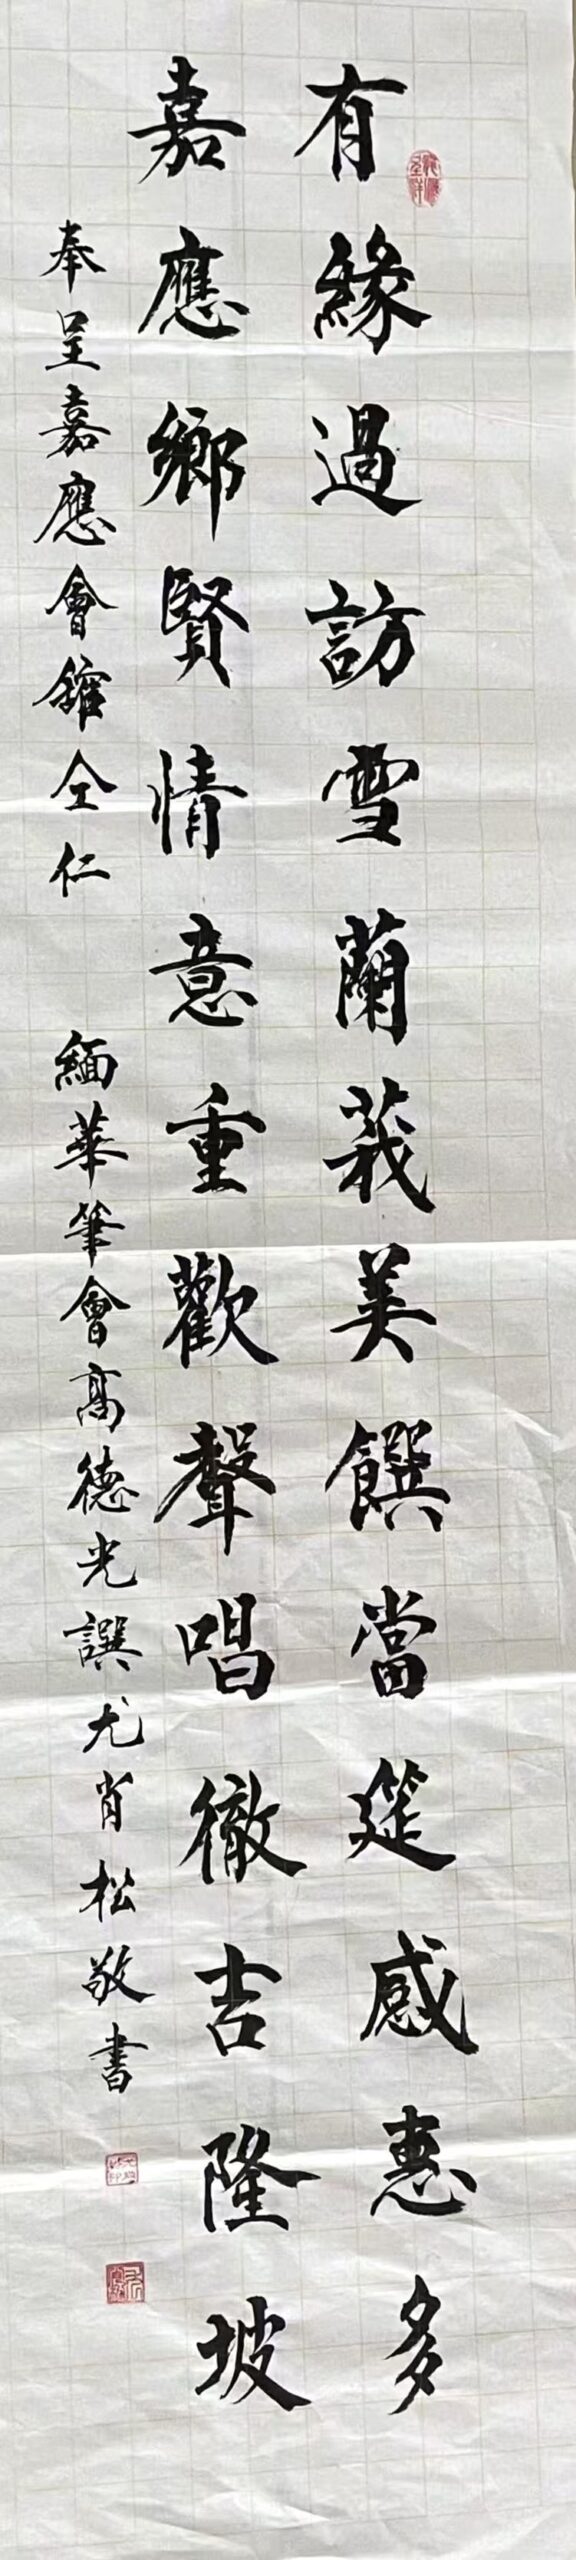 有緣過訪雪蘭莪美饌當筵感惠多
嘉應鄉賢情意重歡聲唱徹吉隆坡
奉呈嘉應會館仝仁 緬華筆會高德光譔尤肖松敬書